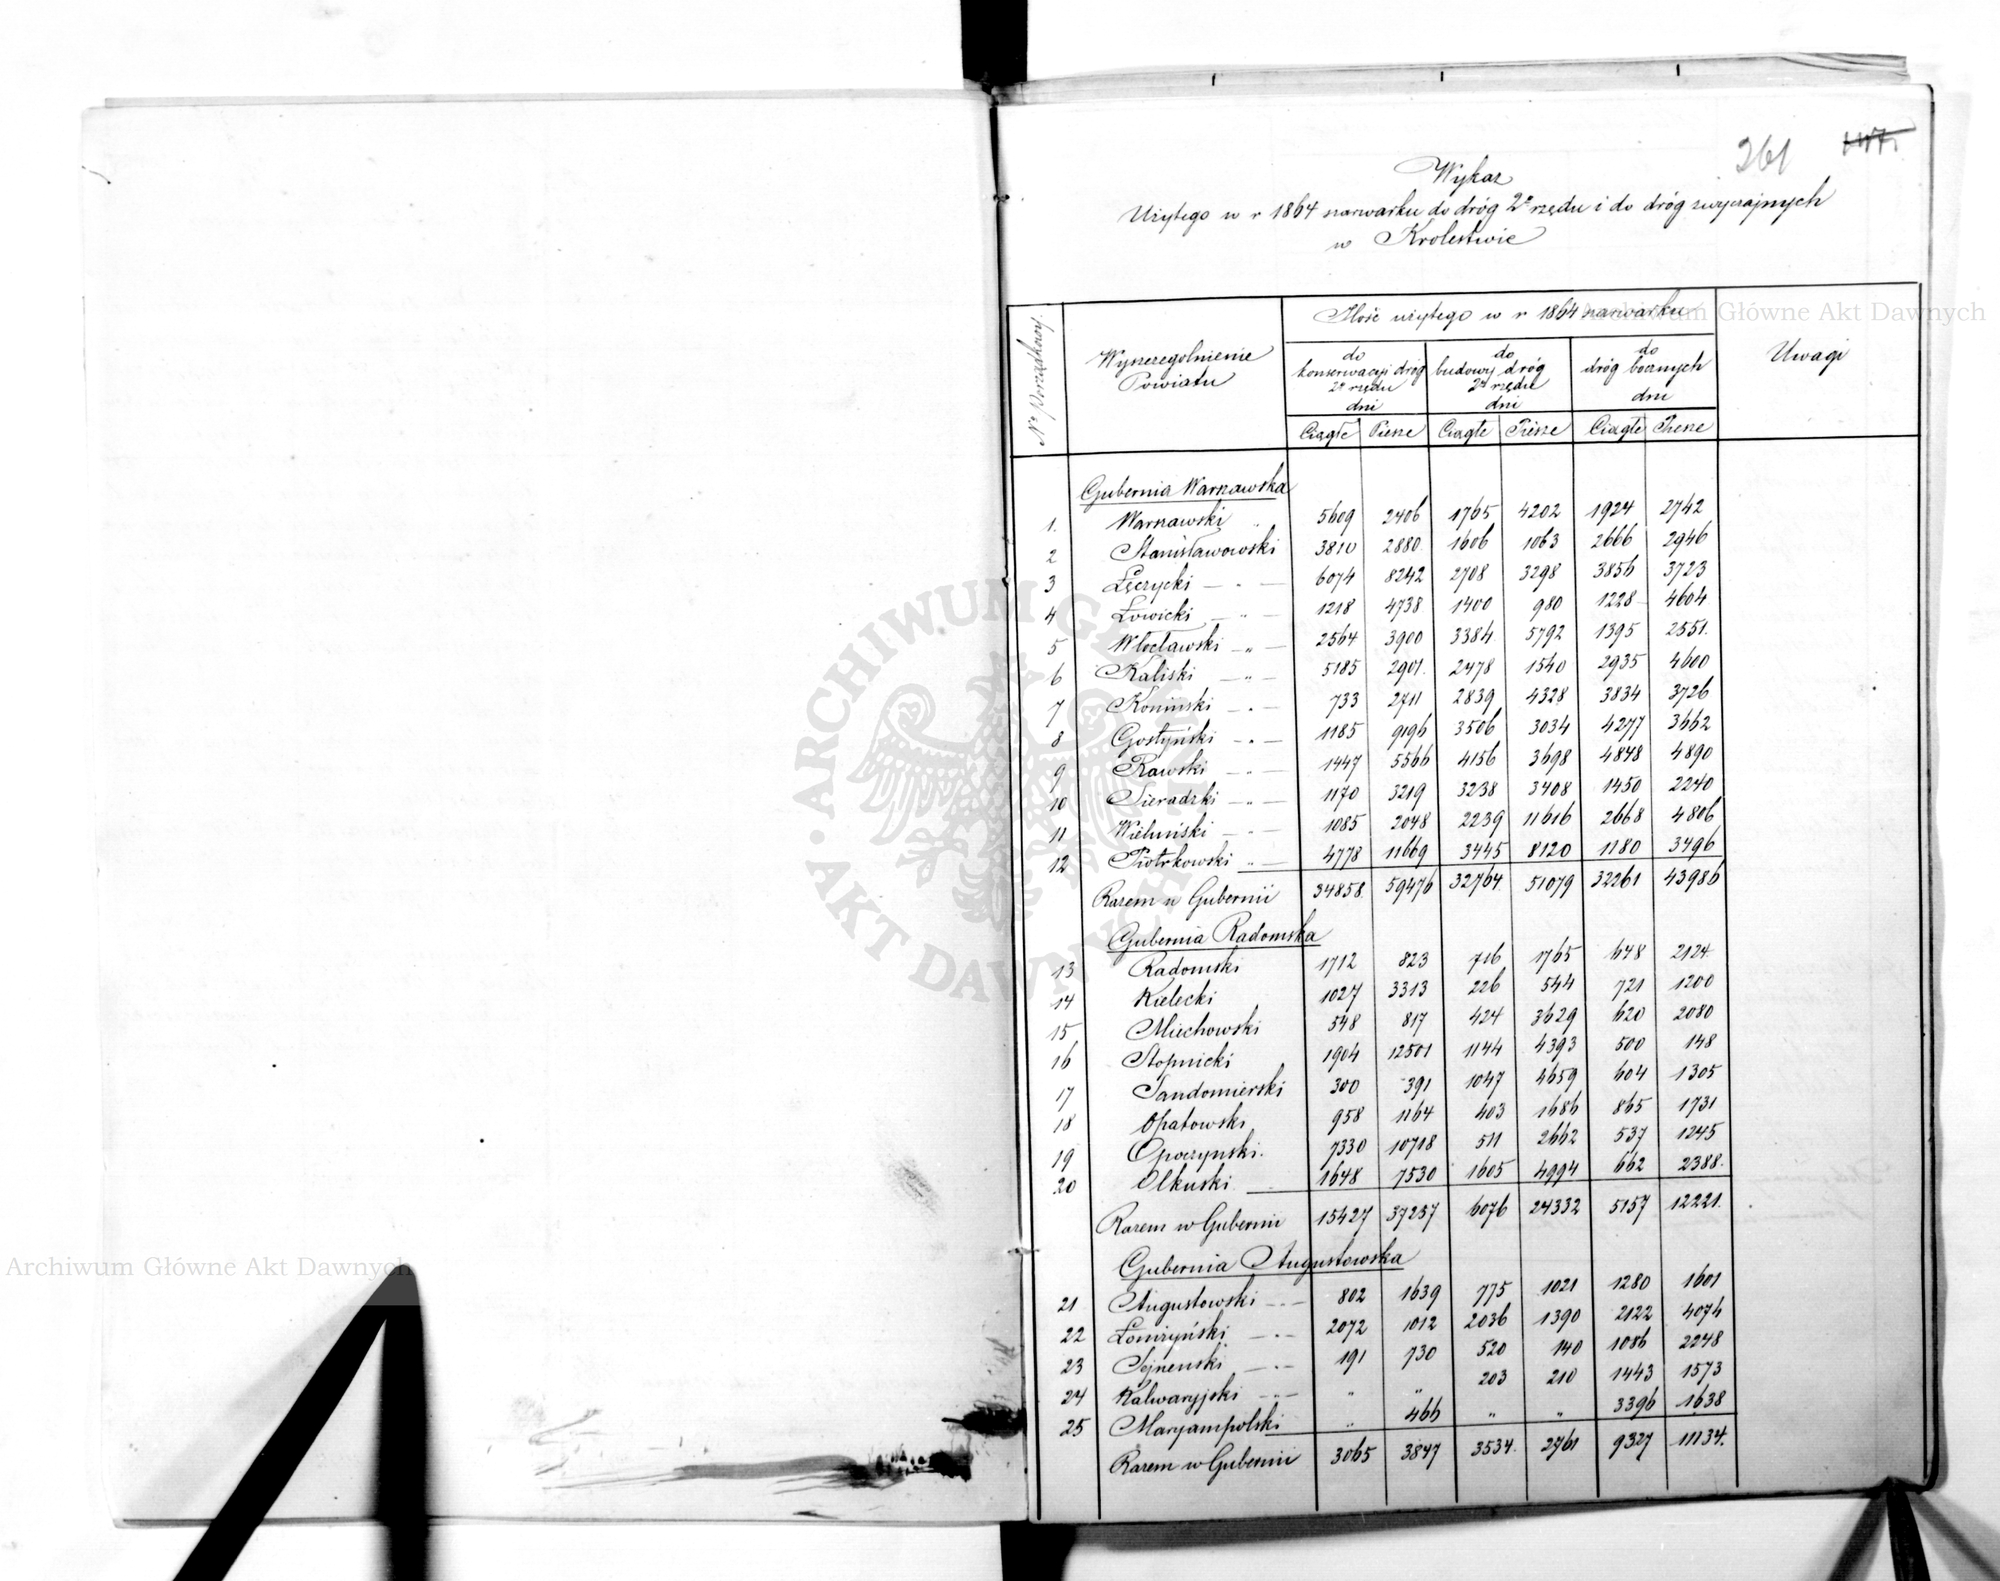 261 1475
Wykaz
Użytego w r 1864 szarwarku do dróg 2º rzędu i do dróg zwyczajnych
w Królestwie
Nº Porządkowy
Wyszczególnienie Powiatu
Ilość użytego w r 1864 szarwarku
Uwagi
do konserwacyi dróg 2º rzędu dni
do budowy dróg 2º rzędu dni
do dróg bocznych dni
Ciągłe Piesze Ciągłe Piesze Ciągłe Piesze
Gubernia Warszawska
1. Warszawski " 5609 2406 1765 4202 1924 2742
2 Stanisławowski 3810 2880 1606 1063 2666 2946
3 Łęczycki — " — 6074 8242 2708 3298 3856 3723
4 Łowicki — " — 1218 4738 1400 980 1228 4604
5 Włocławski — " — 2564 3900 3384 5792 1395 2551
6 Kaliski — " — 5185 2901 2478 1540 2935 4600
7 Koniński — " — 733 2711 2839 4328 3834 3726
8 Gostyński — " — 1185 9196 3506 3034 4277 3662
9 Rawski — " — 1447 5566 4156 3698 4848 4890
10 Sieradzki — " — 1170 3219 3238 3408 1450 2240
11 Wieluński — " — 1085 2048 2239 11616 2668 4806
12 Piotrkowski " — 4778 11669 3445 8120 1180 3496
Razem w Gubernii 34858 59476 32764 51079 32261 43986
Gubernia Radomska
13 Radomski 1712 823 716 1765 648 2124
14 Kielecki 1027 3313 226 544 721 1200
15 Miechowski 548 817 424 3629 620 2080
16 Stopnicki 1904 12501 1144 4393 500 148
17 Sandomierski 300 391 1047 4659 604 1305
18 Opatowski 958 1164 403 1686 865 1731
19 Opoczyński 7330 10718 511 2662 537 1245
20 Olkuski 1648 7530 1605 4994 662 2388
Razem w Gubernii 15427 37257 6076 24332 5157 12221
Gubernia Augustowska
21 Augustowski — " — 802 1639 775 1021 1280 1601
22 Łomżyński — " — 2072 1012 2036 1390 2122 4074
23 Sejneński — " — 191 730 520 140 1086 2248
24 Kalwaryjski — " — " " 203 210 1443 1573
25 Maryampolski " 466 " " 3396 1638
Razem w Gubernii 3065 3847 3534 2761 9327 11134
Archiwum Główne Akt Dawnych
ARCHIWUM GŁÓWNE AKT DAWNYCH
Archiwum Główne Akt Dawnych